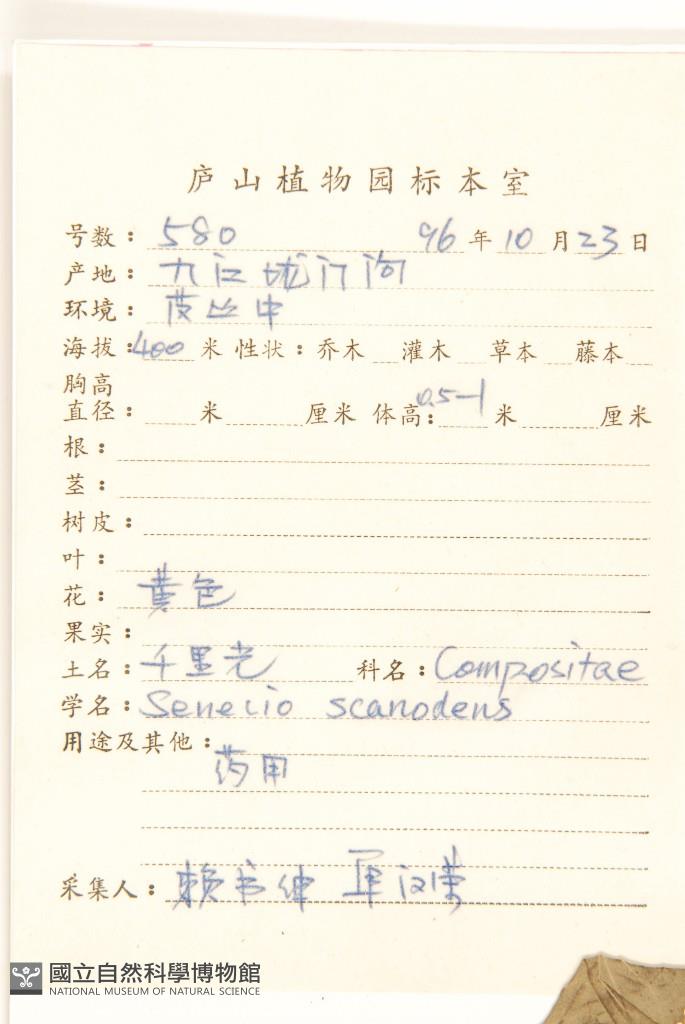 庐山植物园标本室
号数：580 96年10月23日
产地：九江垅门沟
环境：茂丛中
海拔：400米 性状：乔木 灌木 草本 藤本
胸高
直径： 米 厘米 体高：0.5-1米 厘米
根：
茎：
树皮：
叶：
花：黄色
果实：
土名：千里光 科名：Compositae
学名：Senecio scanodens
用途及其他：
药用
采集人：赖书绅
國立自然科學博物館
NATIONAL MUSEUM OF NATURAL SCIENCE